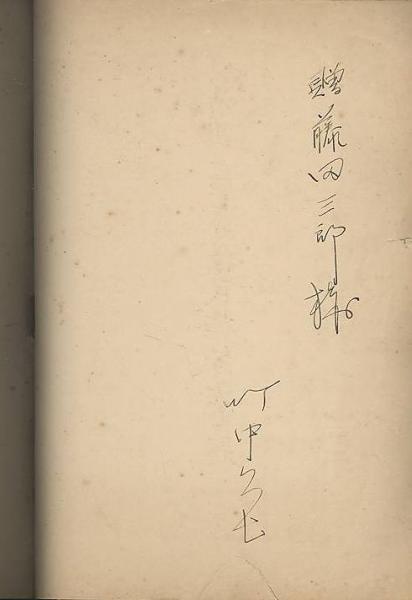 贈藤田三郎様
竹中久七